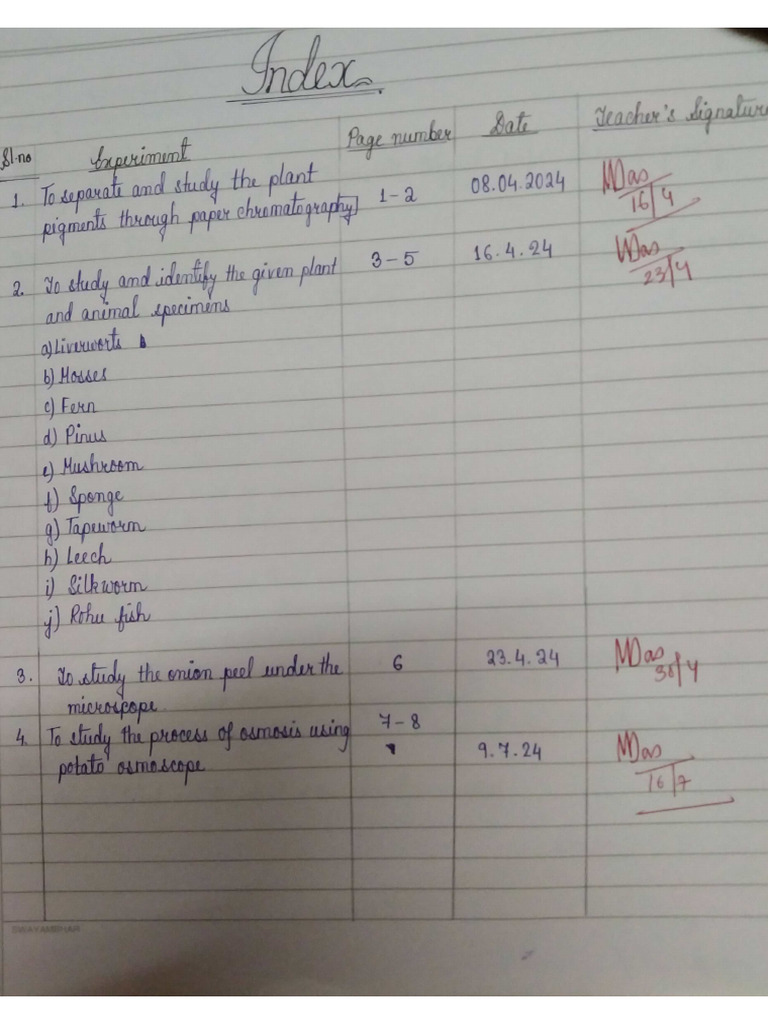 Index
Sl.no Experiment Page number Date Teacher's Signature
1. To separate and study the plant 1-2 08.04.2024 MDas
pigments through paper chromatography 16/4
2. To study and identify the given plant 3-5 16.4.24 MDas
and animal specimens 23/4
a) Liverworts
b) Mosses
c) Fern
d) Pinus
e) Mushroom
f) Sponge
g) Tapeworm
h) Leech
i) Silkworm
j) Rohu fish
3. To study the onion peel under the 6 23.4.24 MDas
microscope 30/4
4. To study the process of osmosis using 7-8
potato osmoscope 9.7.24 MDas
16/7